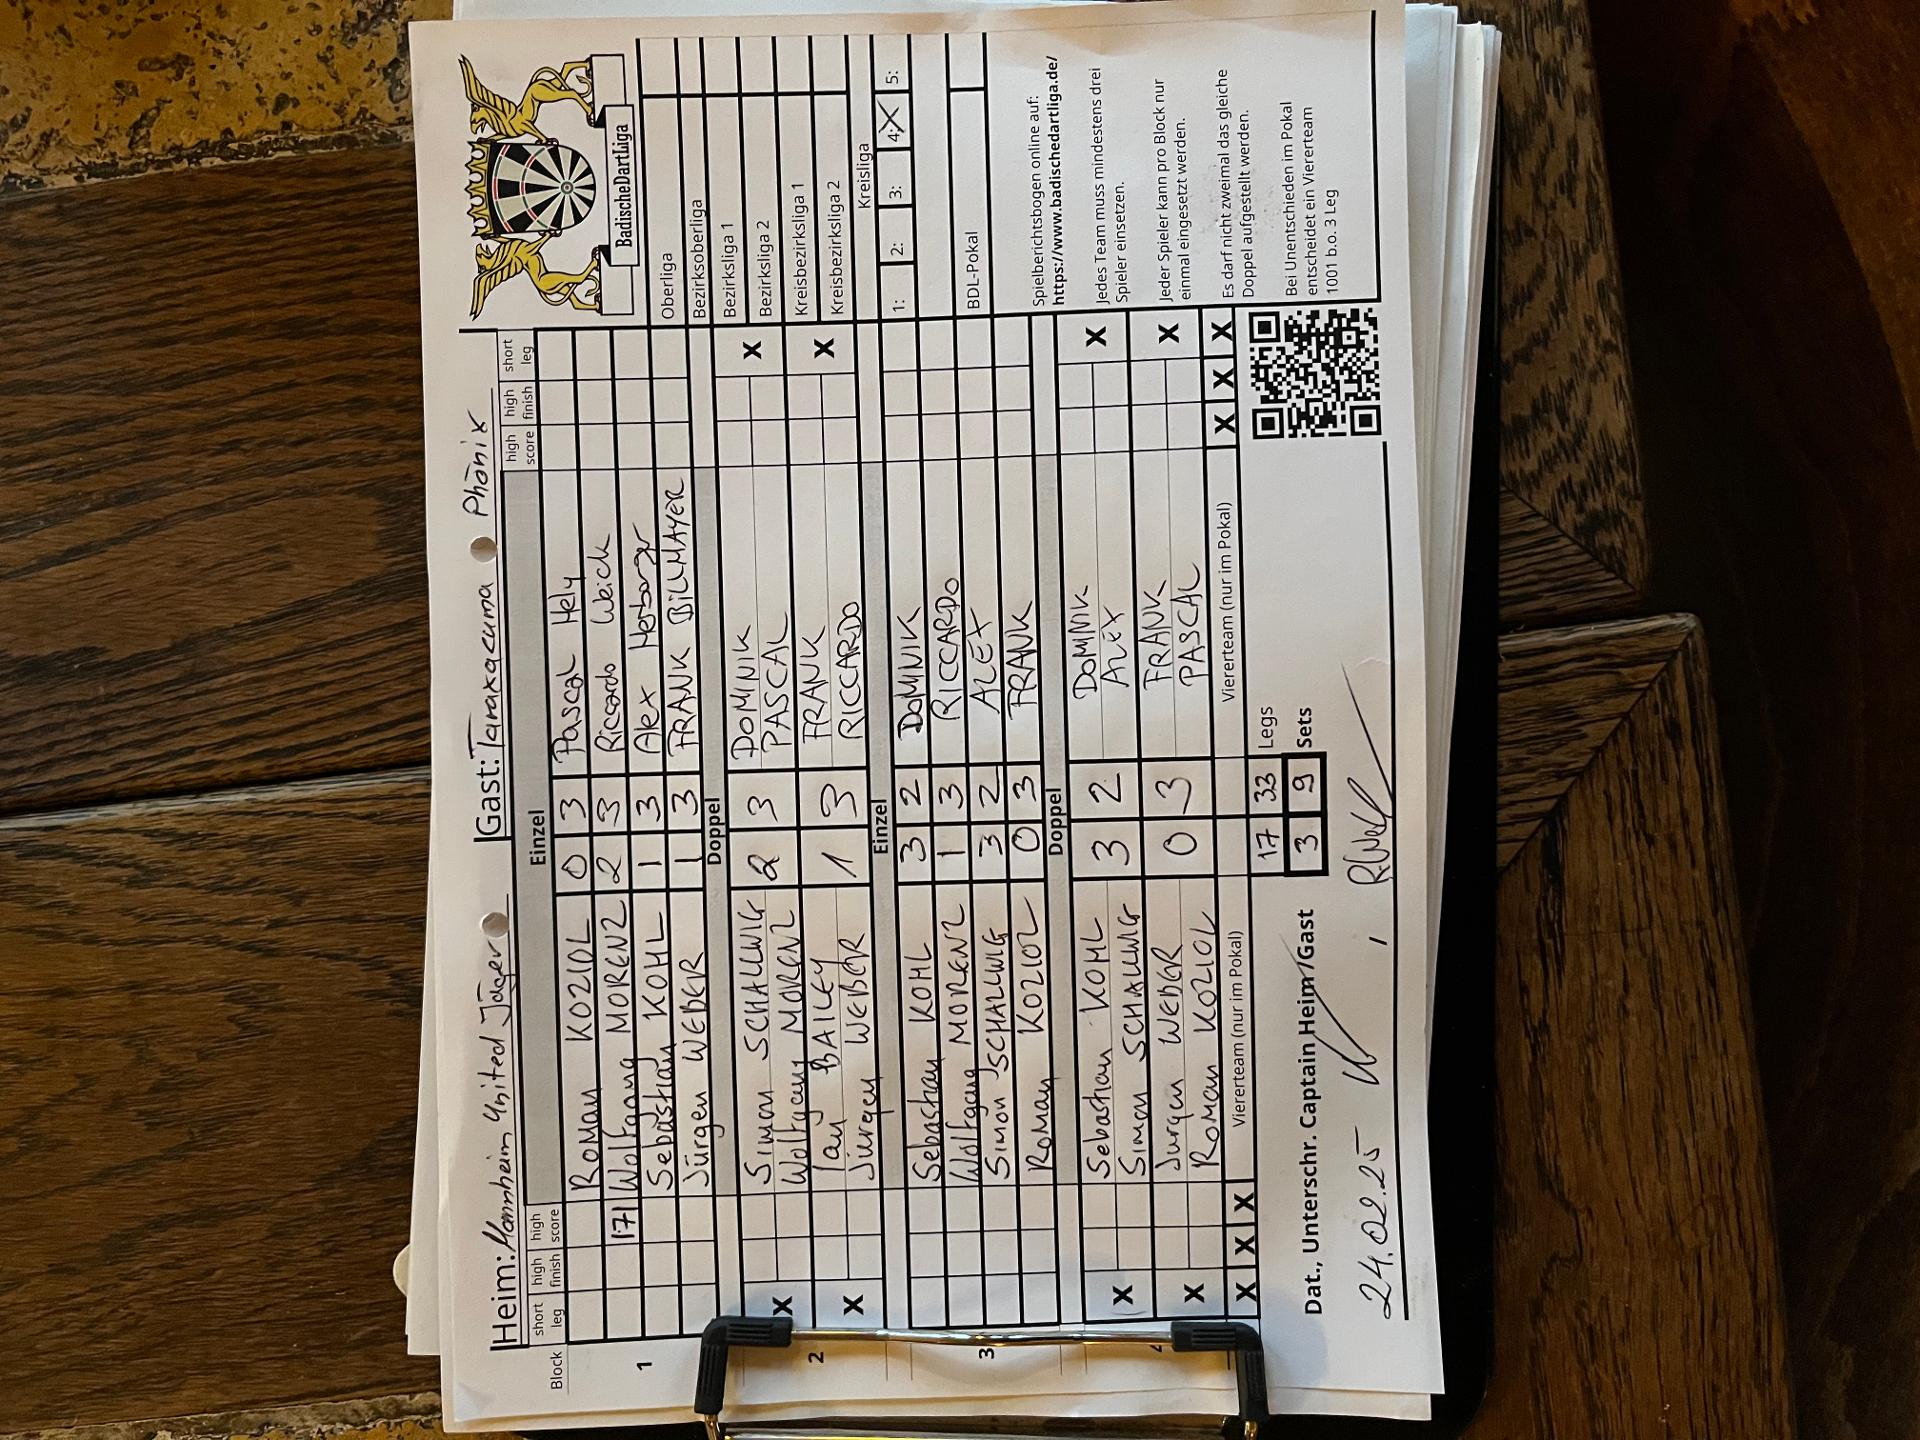 Heim: Mannheim United Jäger Gast: Taraxacuma Phönix
BadischeDartLiga
Block short leg high finish high score Einzel high score high finish short leg
1
Roman KOZIOL 0 3 Pascal Hely
171 Wolfgang MORENZ 2 3 Riccardo Weick
Sebastian KOHL 1 3 Alex Herberger
Jürgen WEBER 1 3 FRANK BILLMAYER
Doppel
2
Simon SCHALLWIG 2 3 DOMINIK
Wolfgang MORENZ PASCAL
X X
Ian BAILEY 1 3 FRANK
Jürgen WEBER RICCARDO
X X
Einzel
3
Sebastian KOHL 3 2 DOMINIK
Wolfgang MORENZ 1 3 RICCARDO
Simon SCHALLWIG 3 2 ALEX
Roman KOZIOL 0 3 FRANK
Doppel
4
Sebastian KOHL 3 2 DOMINIK
Simon SCHALLWIG ALEX
X X
Jürgen WEBER 0 3 FRANK
Roman KOZIOL PASCAL
X X
X X X Viererteam (nur im Pokal) Viererteam (nur im Pokal) X X X
17 33 Legs
3 9 Sets
Dat., Unterschr. Captain Heim/Gast
24.02.25
Oberliga
Bezirksoberliga
Bezirksliga 1
Bezirksliga 2
Kreisbezirksliga 1
Kreisbezirksliga 2
Kreisliga
1: 2: 3: 4: X 5:
BDL-Pokal
Spielberichtsbogen online auf:
https://www.badischedartliga.de/
Jedes Team muss mindestens drei
Spieler einsetzen.
Jeder Spieler kann pro Block nur
einmal eingesetzt werden.
Es darf nicht zweimal das gleiche
Doppel aufgestellt werden.
Bei Unentschieden im Pokal
entscheidet ein Viererteam
1001 b.o. 3 Leg